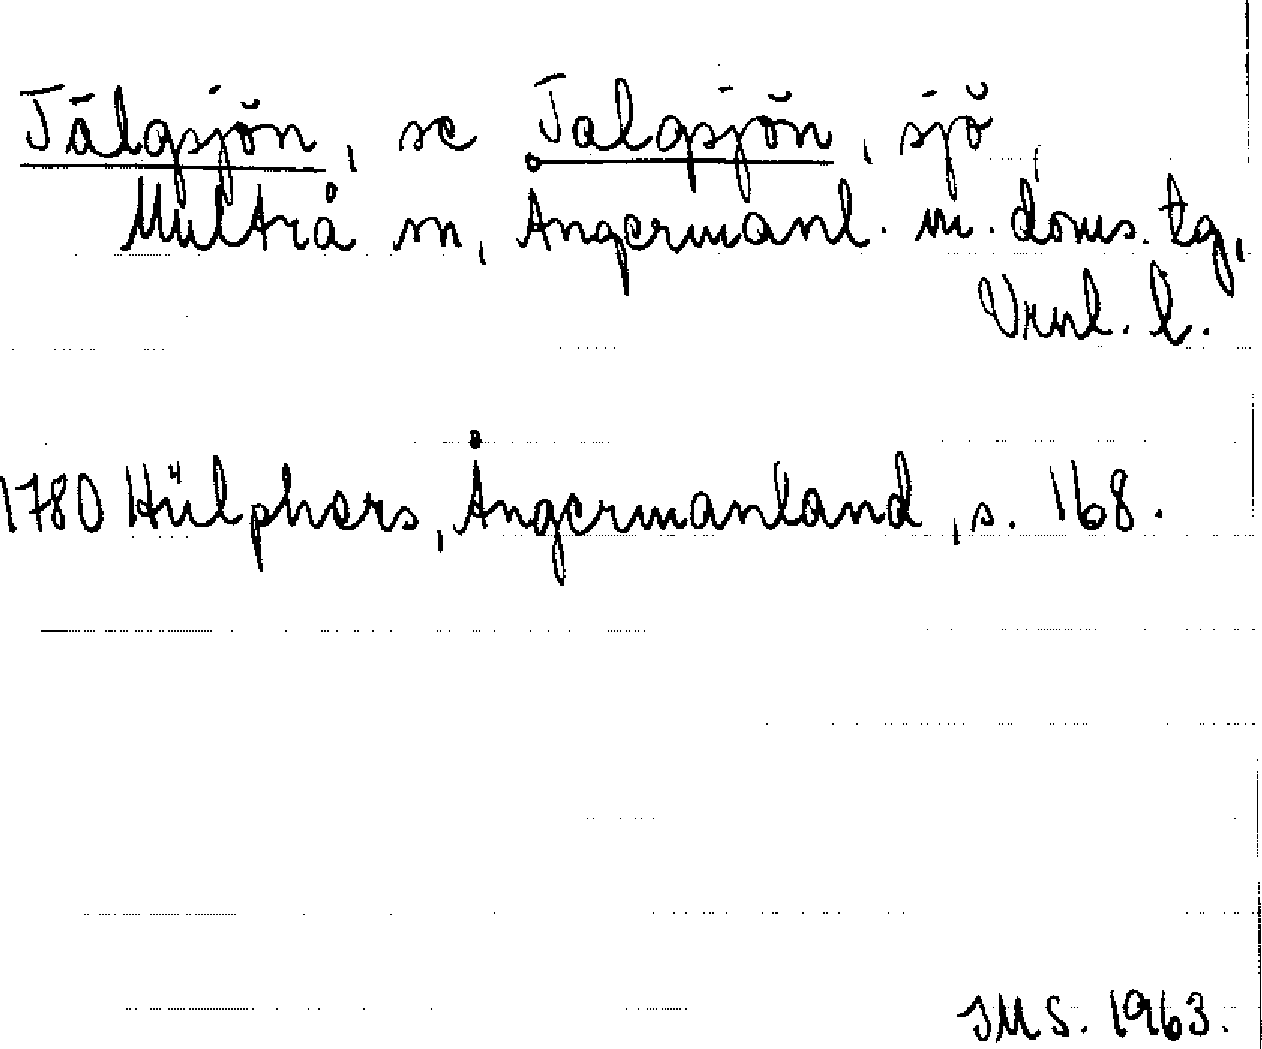 Tälgsjön, se Talgsjön, sjö
Multrå sn, Ångermanl. m. doms. tg,
Vrnl. l.
1780 Hülphers, Ångermanland, s. 168.
JMS. 1963.